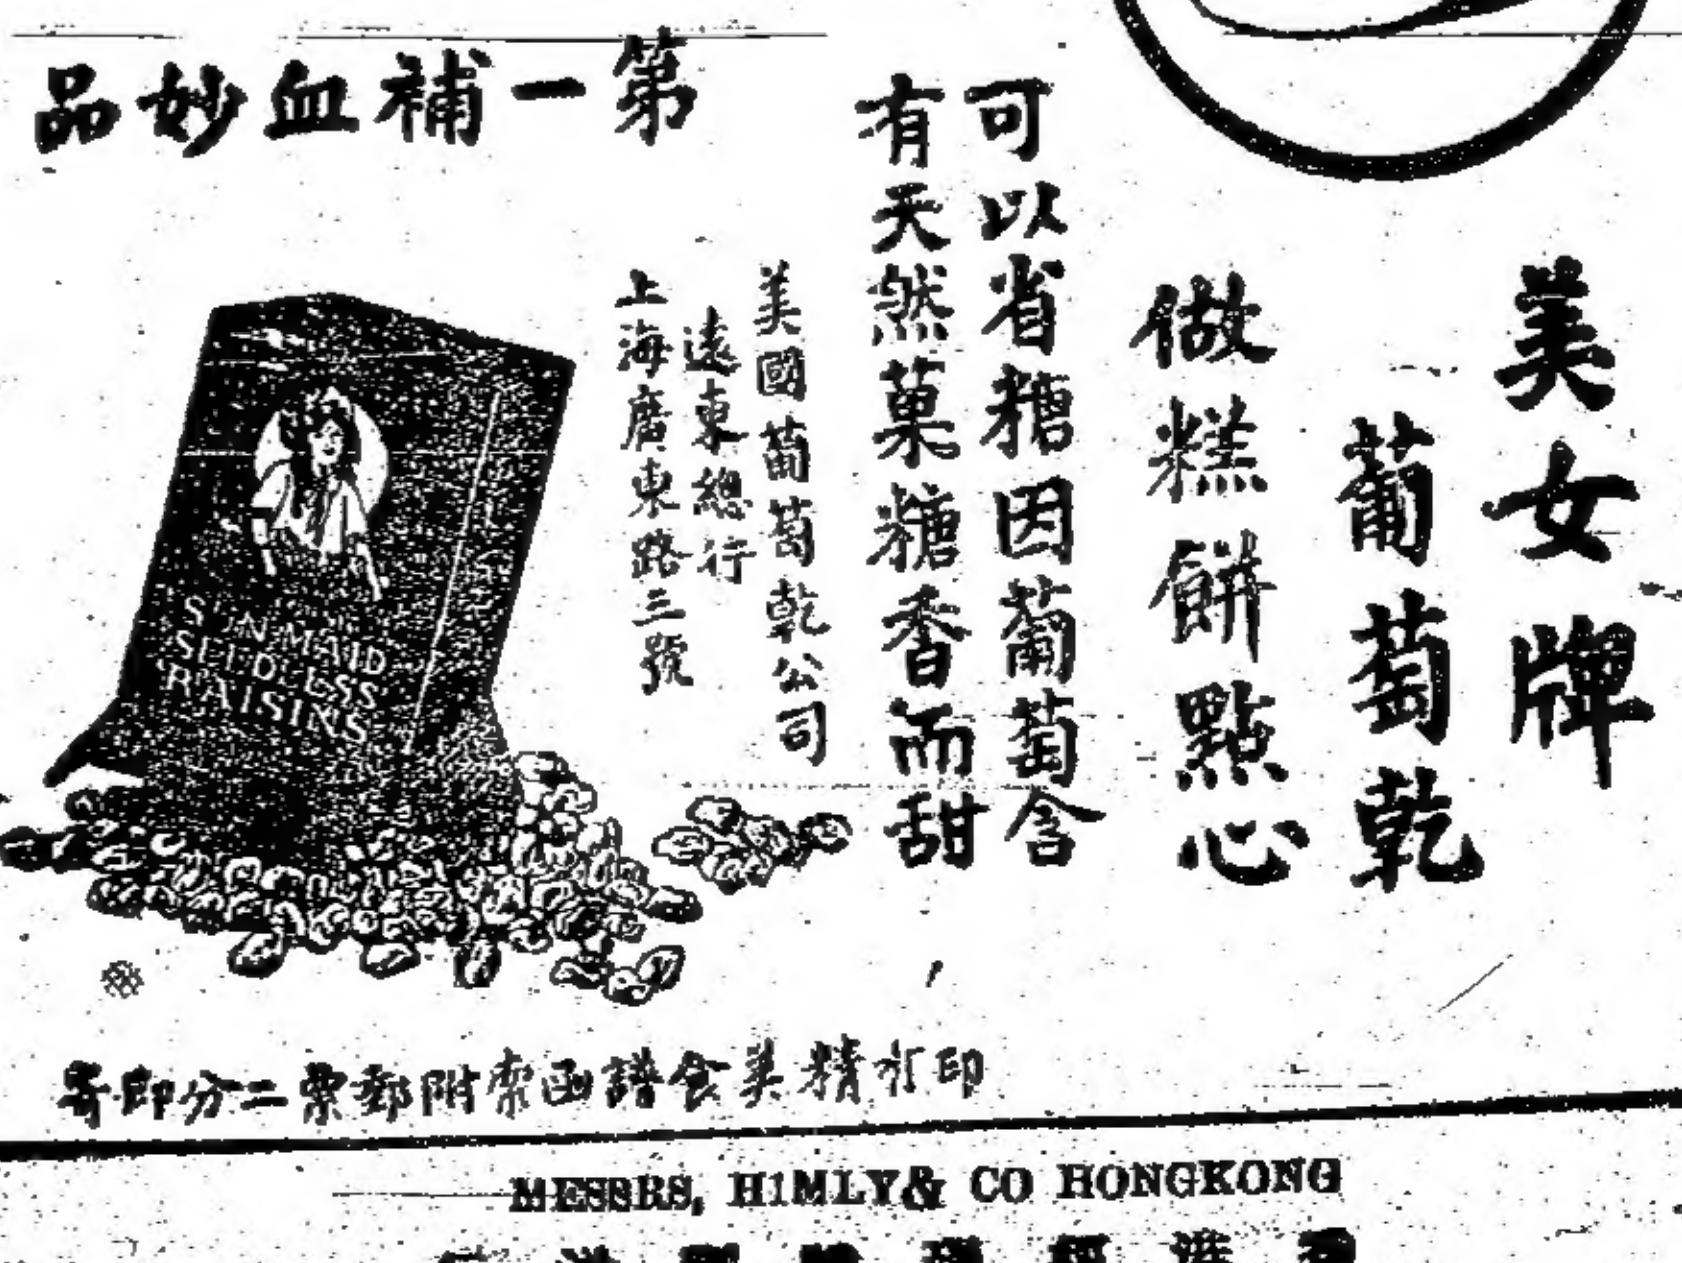 第一補血妙品
美女牌
葡萄乾
做糕餅點心
可以省糖因葡萄含
有天然菓糖香而甜
美國葡萄乾公司
遠東總行
上海廣東路三號
SUN-MAID
SEEDLESS
RAISINS
印精美食譜函索附郵票二分即寄
MESSRS, HIMLY & CO HONGKONG